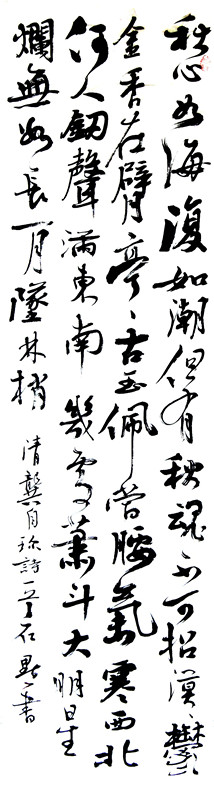 秋心如海復如潮但有秋魂不可招漠々鬱
金香在臂亭々古玉佩當腰氣寒西北
何人劒聲滿東南幾處蕭斗大明星
爛無數長一月墜林梢
清龔自珍詩一 石書